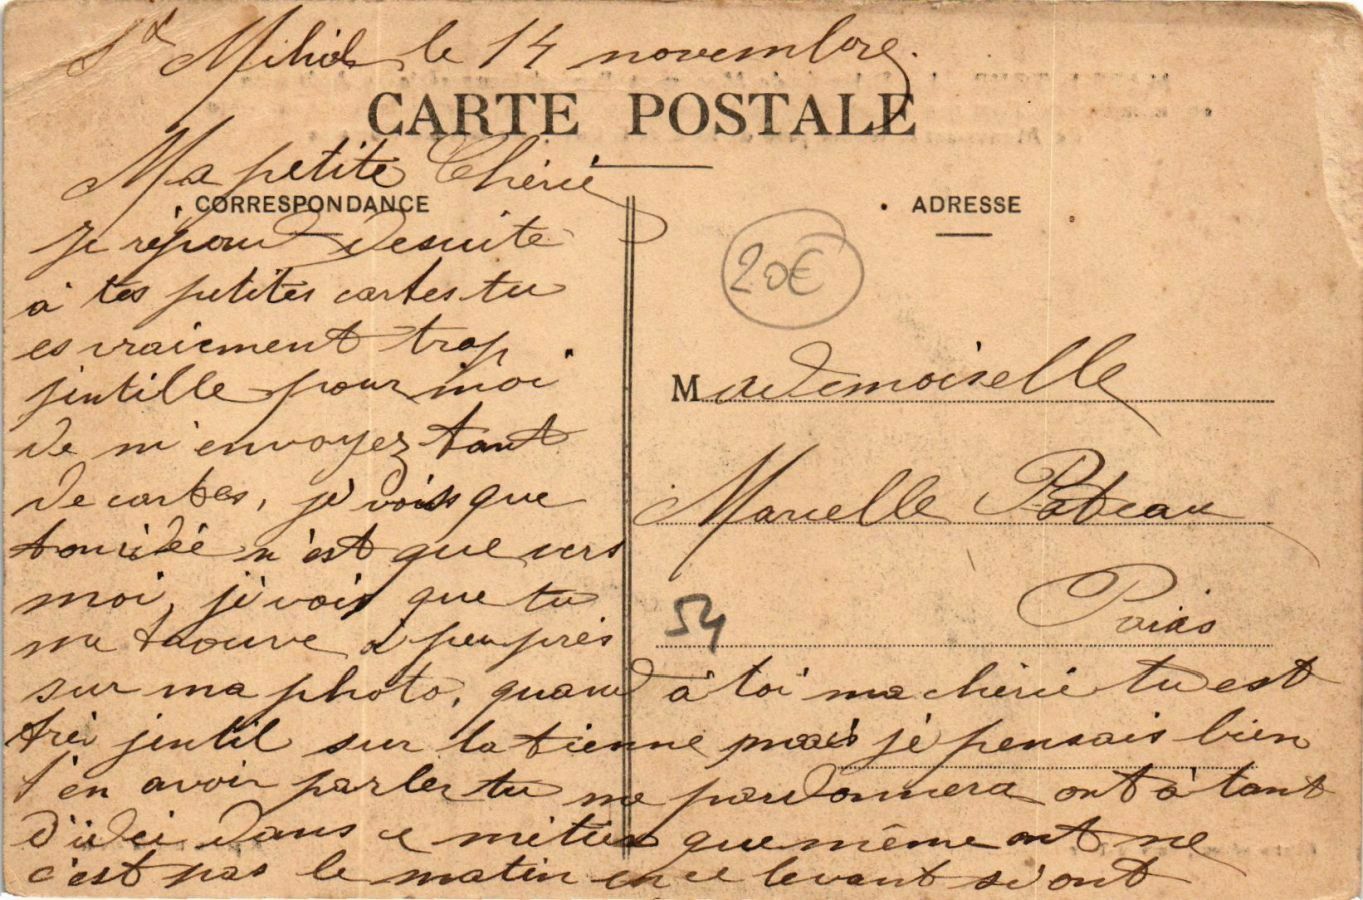 St Mihiel le 14 novembre.
CARTE POSTALE
Ma petite Chérie
CORRESPONDANCE
je répond desuite
à tes petites cartes tu
es vraiement trop
jintille pour moi
de m'envoyez tant
de cartes, je vois que
ton idée n'est que vers
moi, je vois que tu
me trouve à peu près
sur ma photo, quand à toi ma chérie tu est
très jintil sur la tienne mais je pensais bien
t'en avoir parler tu me pardonnera ont à tant
d'idei dans ce métier que même ont ne
c'est pas le matin en ce levant si ont
ADRESSE
20€
Mademoiselle
Marcelle Pateau
Poids
54